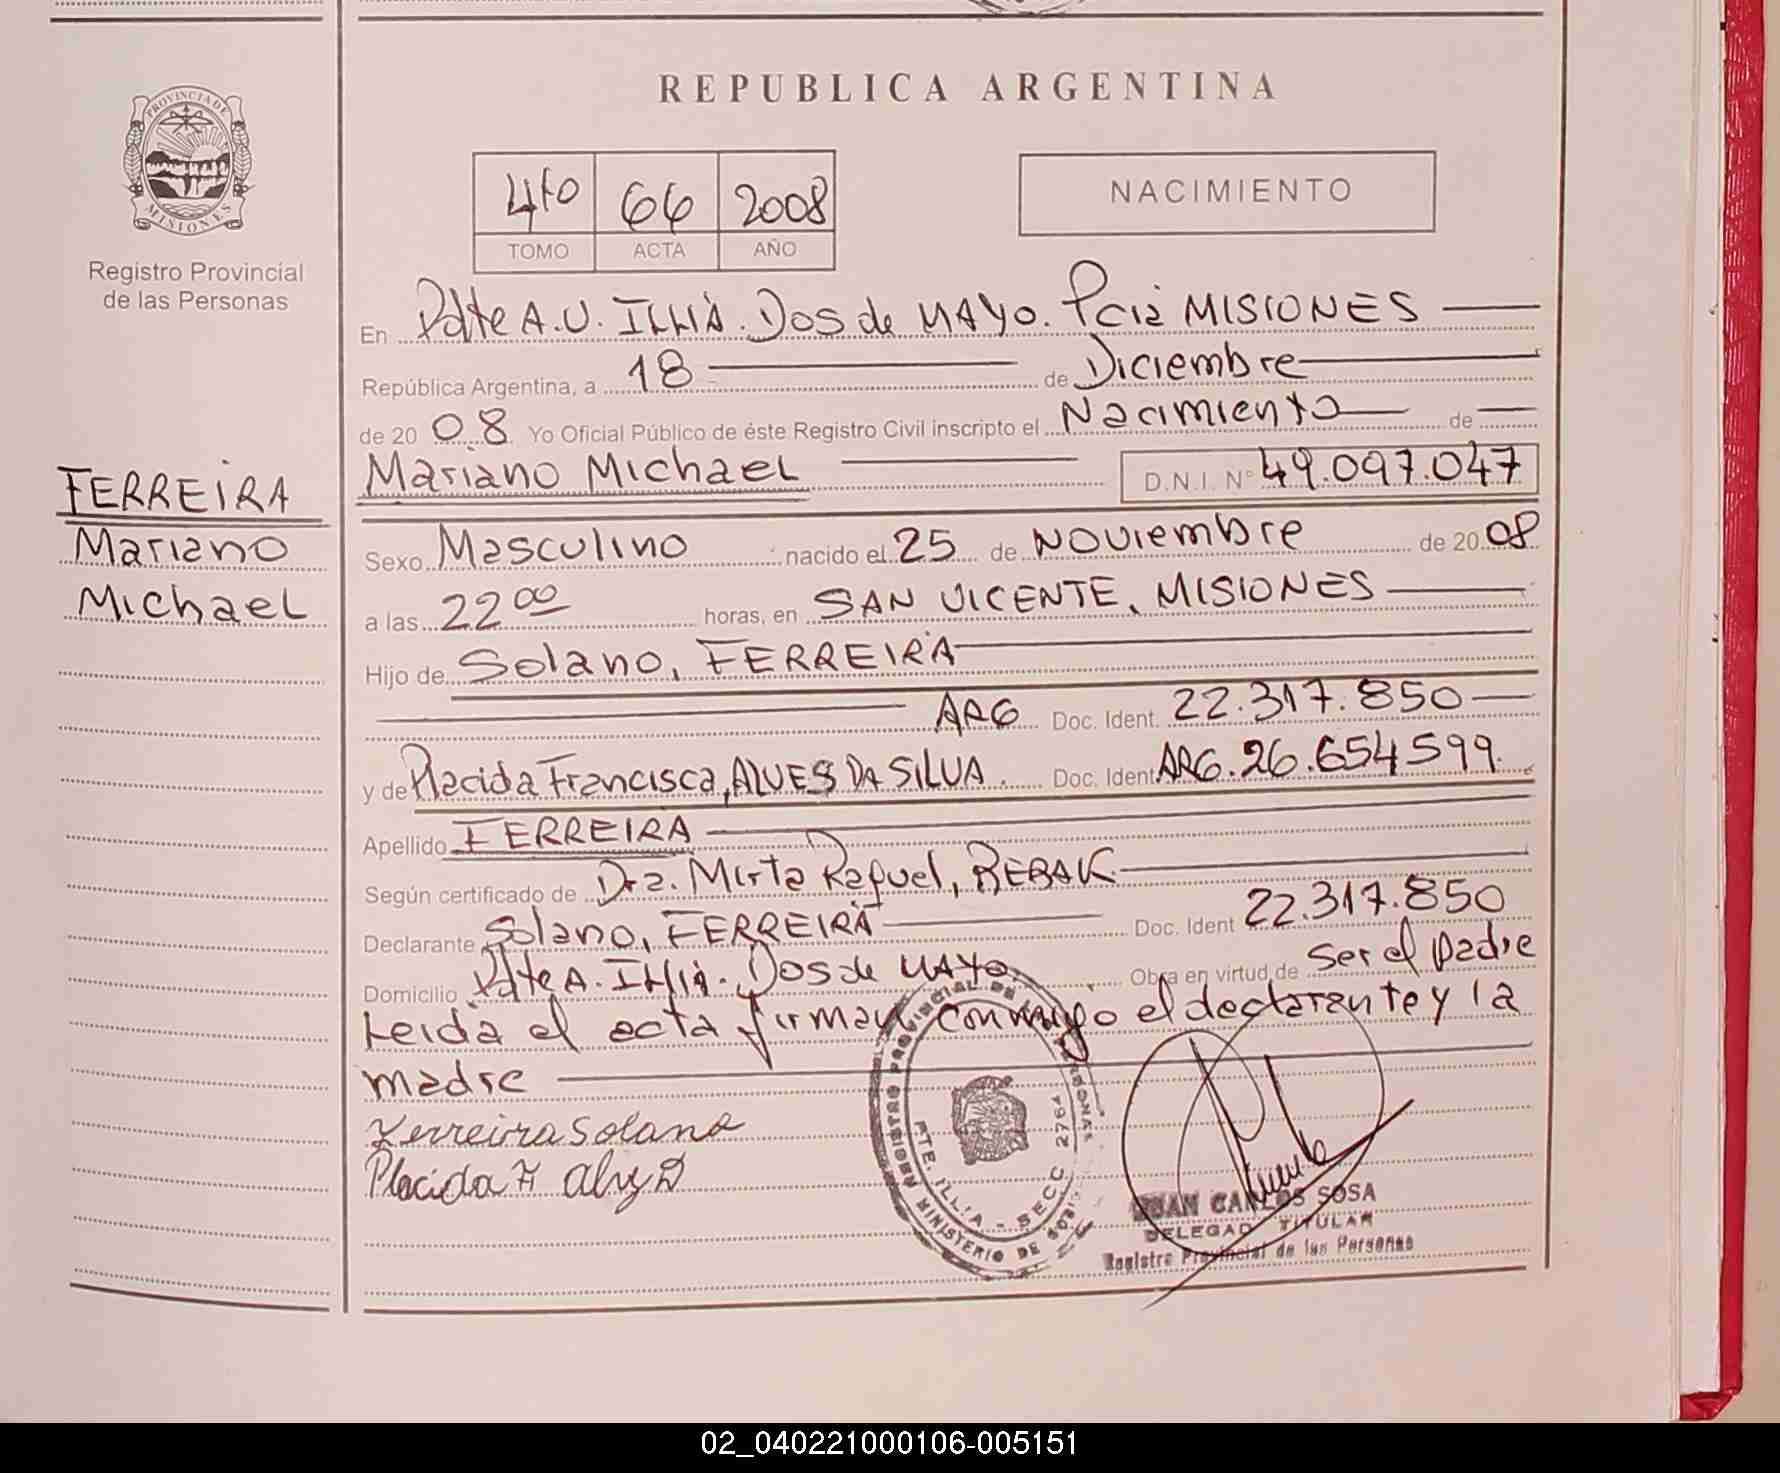 REPUBLICA ARGENTINA
PROVINCIA DE MISIONES
Registro Provincial
de las Personas
4to 66 2008
TOMO ACTA AÑO
NACIMIENTO
En Pdte A.U. ILLIA. Dos de MAYO. Pcia MISIONES
República Argentina, a 18 de Diciembre
de 2008 Yo Oficial Público de éste Registro Civil inscripto el Nacimiento de
Mariano Michael D.N.I. Nº 49.097.047
FERREIRA
Mariano
Michael
Sexo Masculino nacido el 25 de Noviembre de 2008
a las 22 00 horas, en SAN VICENTE, MISIONES
Hijo de Solano, FERREIRA
ARG Doc. Ident. 22.317.850
y de Placida Francisca, ALVES DA SILVA Doc. Ident ARG. 26.654599
Apellido FERREIRA
Según certificado de Dra. Mirta Raquel, REBAK
Declarante Solano, FERREIRA Doc. Ident 22.317.850
Domicilio Pdte A. Illia. Dos de MAYO. Obra en virtud de ser el padre
Leida el acta firman conmigo el declarante y la
madre
Ferreira Solano
Placida F
REGISTRO PROVINCIAL DE LAS PERSONAS
PTE. ILLIA - SECC 2764
MINISTERIO DE GOBI
JUAN CARLOS SOSA
DELEGADO TITULAR
Registro Provincial de las Personas
02_040221000106-005151